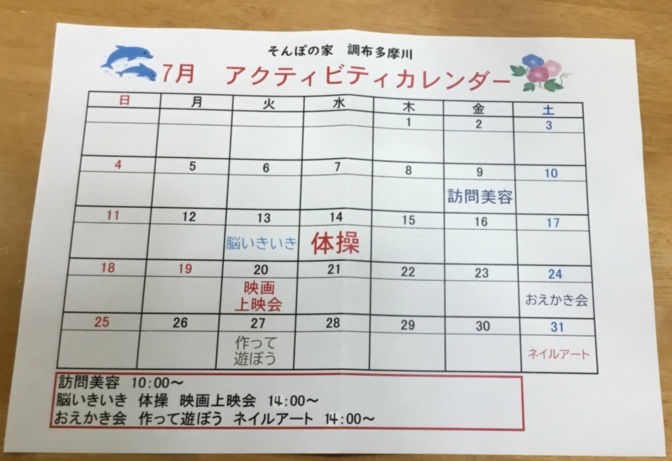 そんぽの家 調布多摩川
7月 アクティビティカレンダー
日 月 火 水 木 金 土
1 2 3
4 5 6 7 8 9 10
訪問美容
11 12 13 14 15 16 17
脳いきいき 体操
18 19 20 21 22 23 24
映画
上映会 おえかき会
25 26 27 28 29 30 31
作って
遊ぼう ネイルアート
訪問美容 10:00~
脳いきいき 体操 映画上映会 14:00~
おえかき会 作って遊ぼう ネイルアート 14:00~